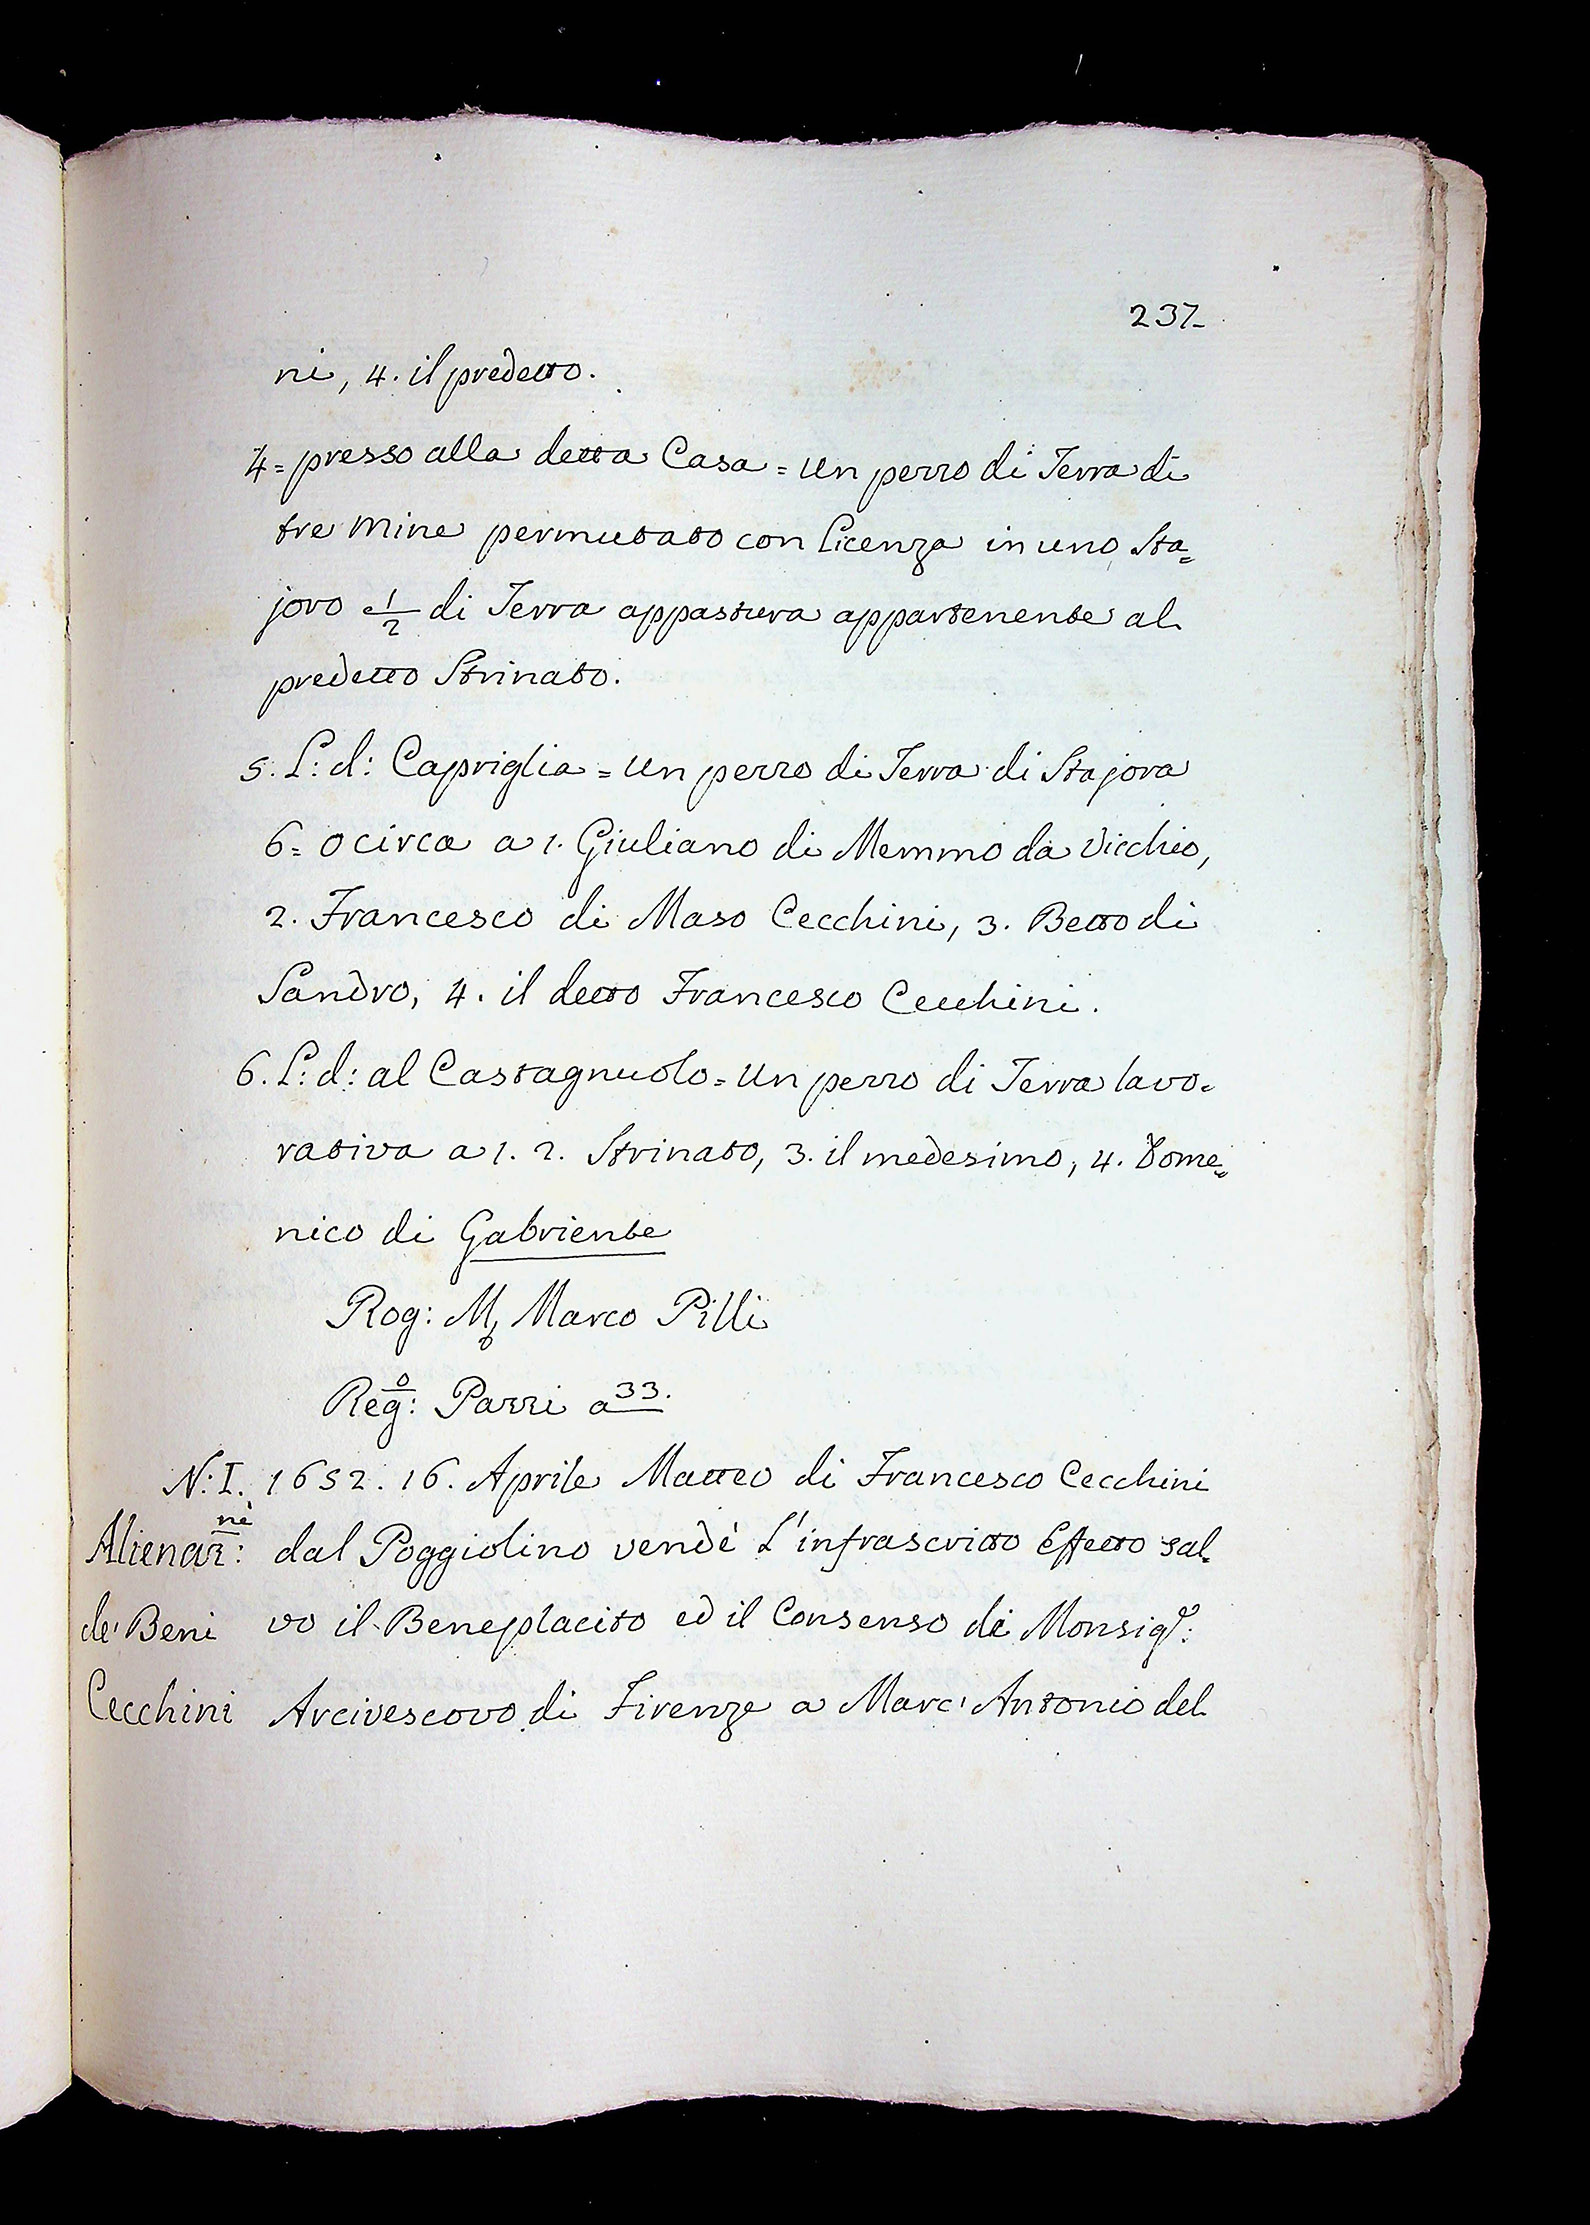 237
ni, 4. il predetto.
4= presso alla detta Casa = un pezzo di Terra di
tre mine permutato con licenza in uno Sta=
joro e 1/2 di Terra appastura appartenente al
predetto Strinato.
5. L: d: Capriglia = un pezzo di Terra di Stajora
6= o circa a 1. Giuliano di Memmo da Vicchio,
2. Francesco di Maso Cecchini, 3. Betto di
Sandro, 4. il detto Francesco Cecchini.
6. L: d: al Castagnuolo = Un pezzo di Terra lavo=
rativa a 1. 2. Strinato, 3. il medesimo, 4. Dome=
nico di Gabriente
Rog: M, Marco Pilli
Reg:o Pazzi a 33.
N: I. 1652. 16. Aprile Matteo di Francesco Cecchini
Alienaz:ne dal Poggiolino vendè L'infrascritto Effetto sal=
de' Beni vo il Beneplacito ed il Consenso di Monsig.e:
Cecchini Arcivescovo di Firenze a Marc' Antonio del